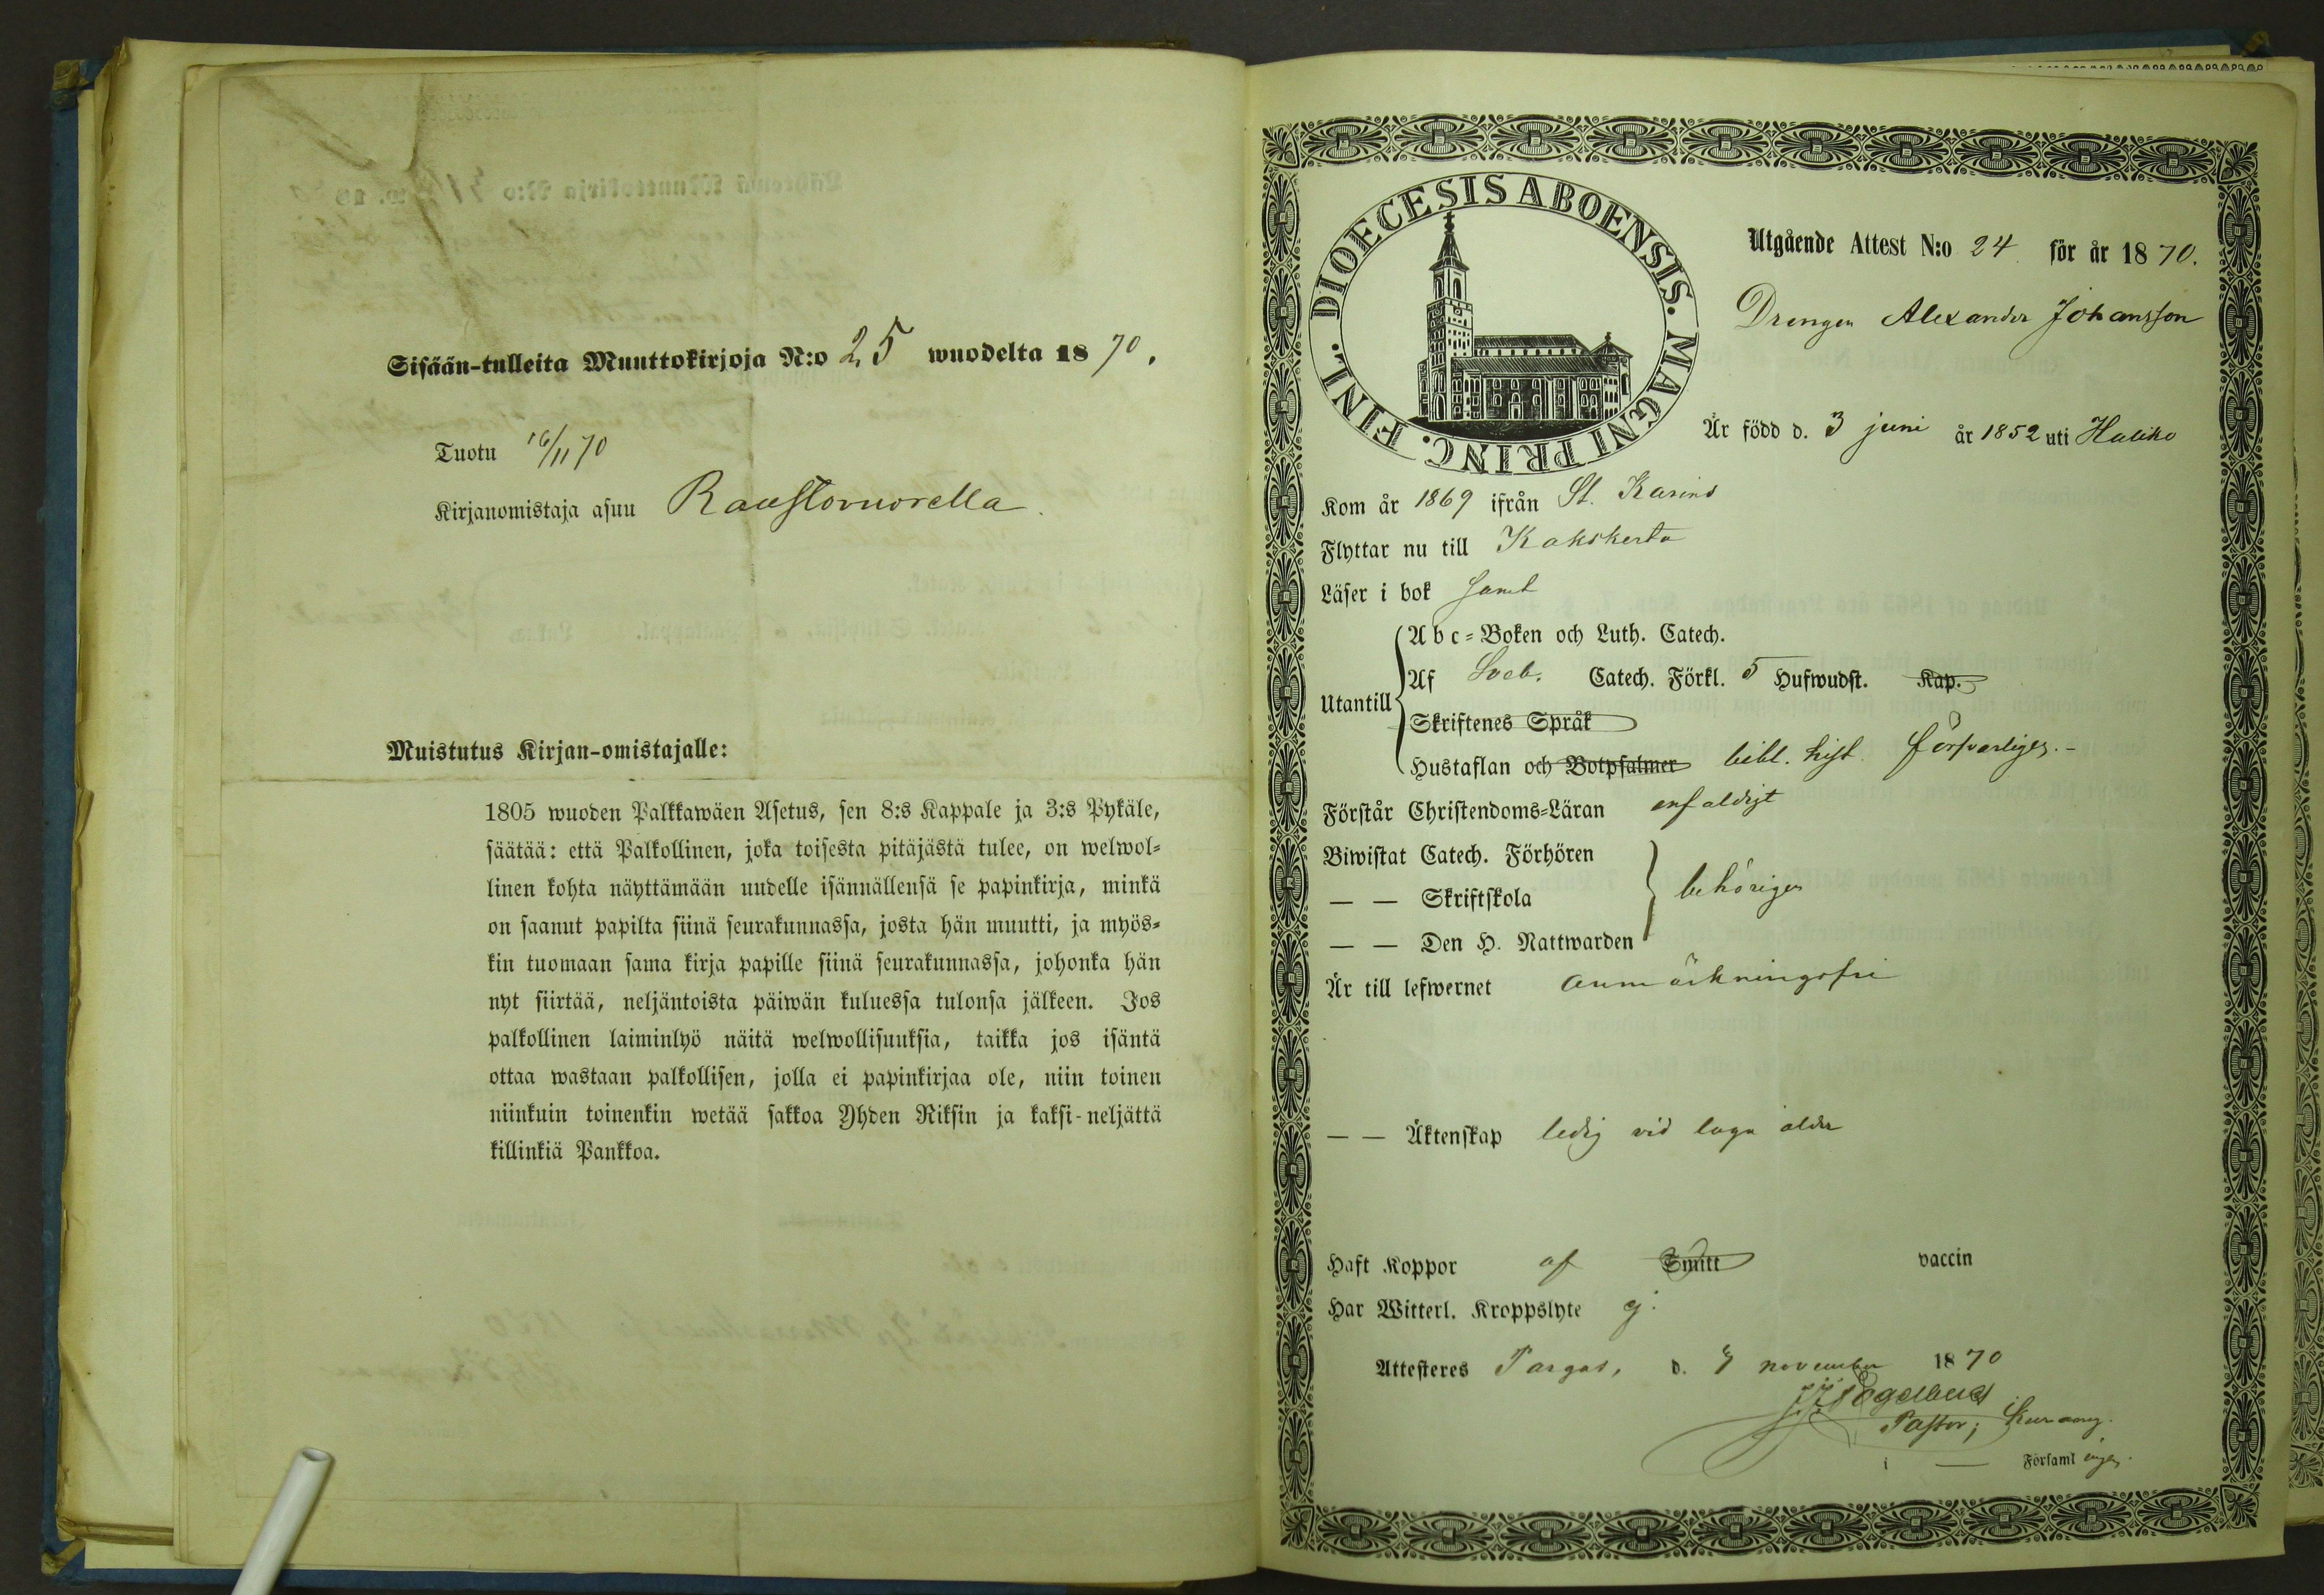 Sisään-tulleita Muuttokirjoja N:o 25 wuodelta 1870.
Tuotu 16/11 70
Kirjanomistaja asuu Raustvuorella.
Muistutus Kirjan-omistajalle:
1805 wuoden Palkkawäen Asetus, sen 8:s Kappale ja 3:s Pykäle,
säätää: että Palkollinen, joka toisesta pitäjästä tulee, on welwol=
linen kohta näyttämään uudelle isännällensä se papinkirja, minkä
on saanut papilta siinä seurakunnassa, josta hän muutti, ja myös=
kin tuomaan sama kirja papille siinä seurakunnassa, johonka hän
nyt siirtää, neljäntoista päiwän kuluessa tulonsa jälkeen. Jos
palkollinen laiminlyö näitä welwollisuuksia, taikka jos isäntä
ottaa wastaan palkollisen, jolla ei papinkirjaa ole, niin toinen
niinkuin toinenkin wetää sakkoa Yhden Riksin ja kaksi-neljättä
killinkiä Pankkoa.
DIOECESIS ABOENSIS. MAGNI PRINC. FINL.
Utgående Attest N:o 24. för år 1870.
Drengen Alexander Johansson
Är född d. 3 juni år 1852 uti Haliko
Kom år 1869 ifrån St. Karins
Flyttar nu till Kakskerta
Läser i bok samt
Utantill
Abc=Boken och Luth. Catech.
Af Sveb. Catech. Förkl. 5 Hufwudst. Kap.
Skriftenes Språk
Hustaflan och Botpsalmer bibl. hist. försvarligen.-
Förstår Christendoms=Läran enfaldigt
Biwistat Catech. Förhören
— — Skriftskola behörigen
— — Den H. Nattwarden
Är till lefwernet anmärkningsfri
— — Äktenskap ledig vid laga ålder
Haft Koppor af Smitt vaccin
Har Witterl. Kroppslyte ej.
Attesteres Pargas, d. 7 november 1870
Pastor,
i — Församlingen.